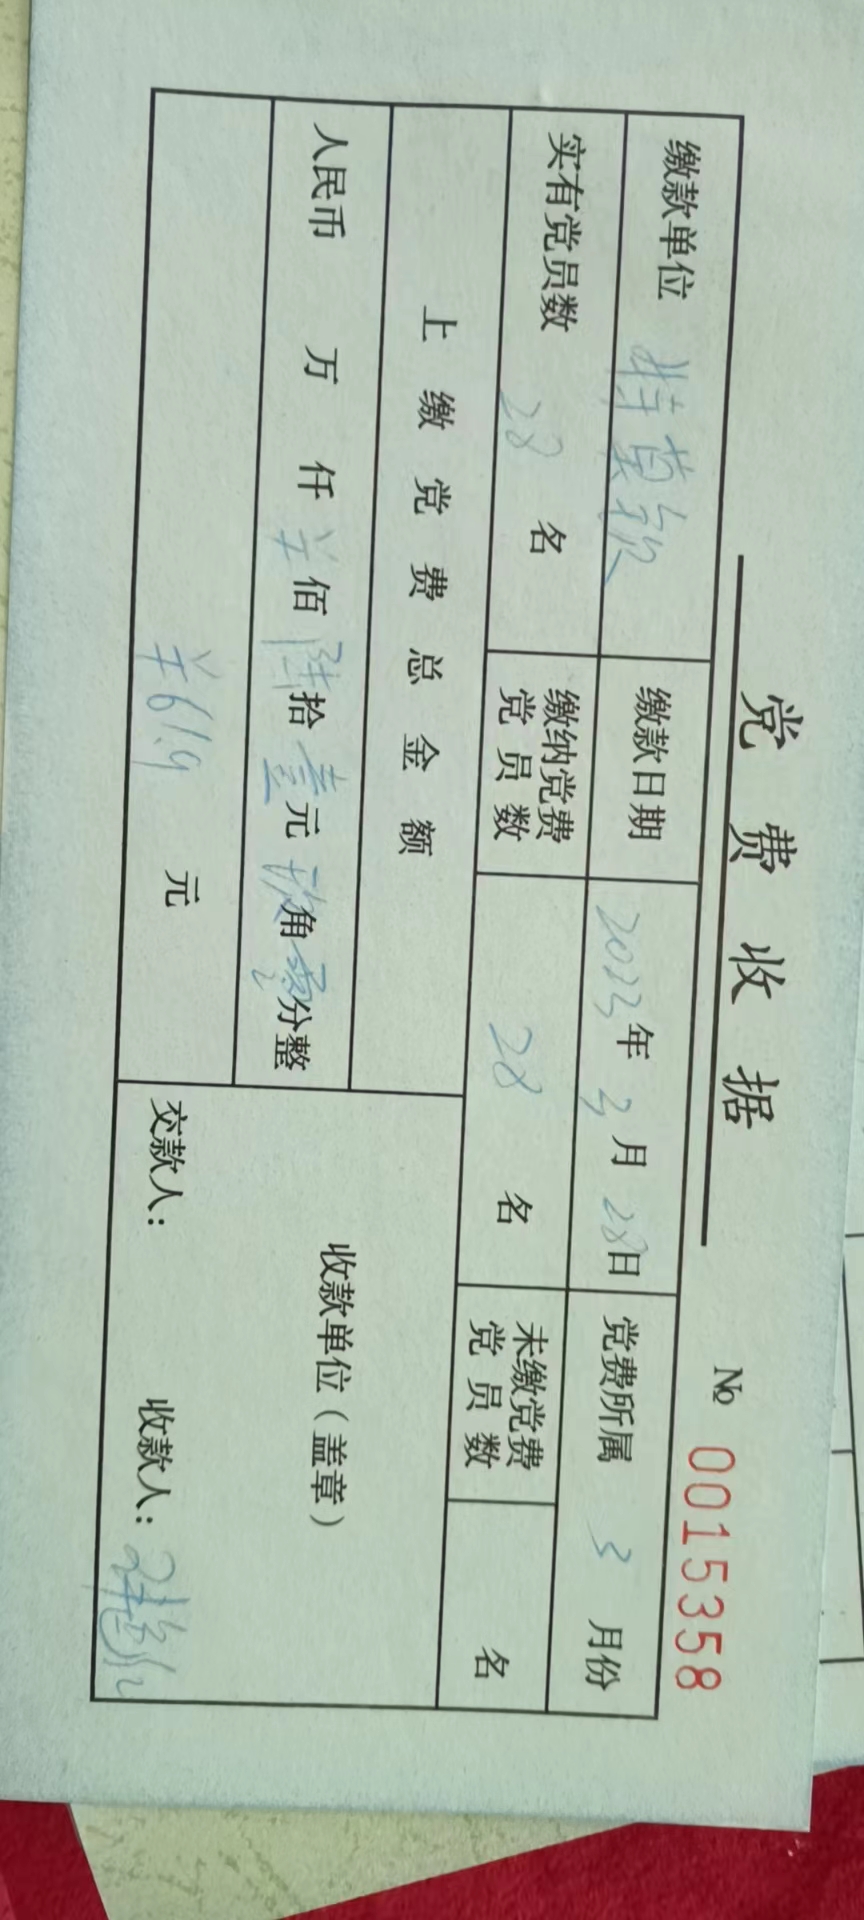 党费收据
No 0015358
缴款单位 缴款日期 2023年3月28日 党费所属 3月份
实有党员数 28名 缴纳党费党员数 28名 未缴党费党员数 名
上缴党费总金额
人民币 万 仟 ¥佰 陆拾 壹元 玖角 零分整
¥61.9 元
收款单位(盖章)
交款人: 收款人: